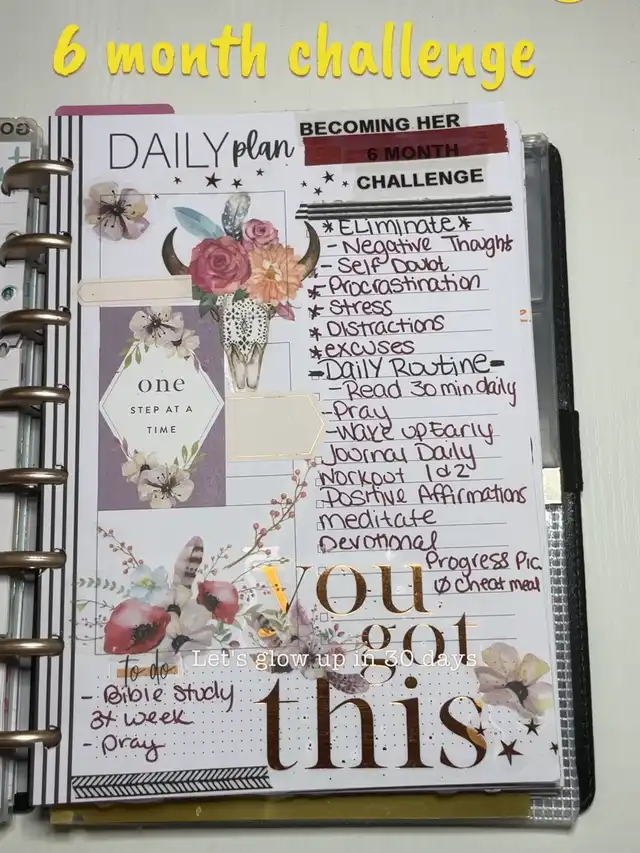 6 month challenge
GO
DAILY plan
BECOMING HER
6 MONTH
CHALLENGE
one
STEP AT A
TIME
*Eliminate*
- Negative Thought
- Self Doubt
* Procrastination
* Stress
* Distractions
* excuses
- Daily Routine -
- Read 30 min daily
- Pray
- Wake up Early
Journal Daily
Workout 1 of 2
Positive Affirmations
meditate
Devotional
Progress Pic.
Ø cheat meal
you
got
this.
Let's glow up in 30 days
to do
- Bible Study
3x week
- Pray